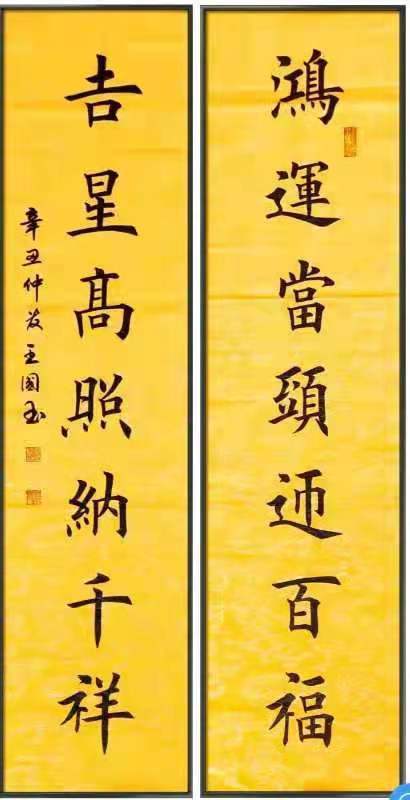 鴻運當頭迎百福
吉星髙照納千祥
辛丑仲夏王國玉